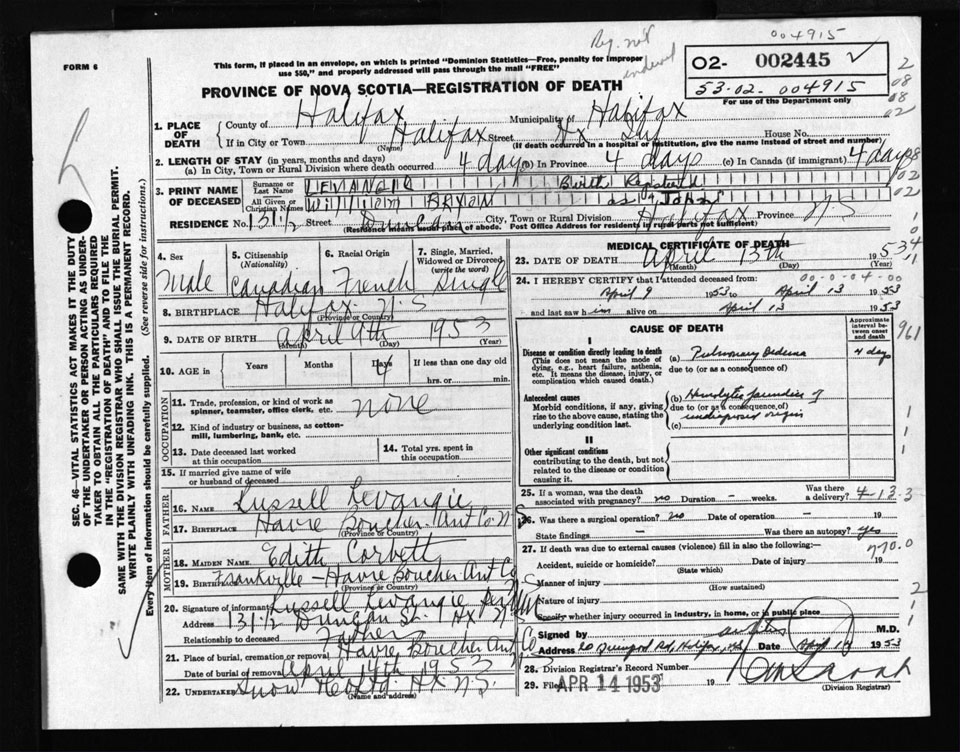 004915
Reg. not
indexed
FORM 6
This form, if placed in an envelope, on which is printed "Dominion Statistics—Free, penalty for improper
use $50," and properly addressed will pass through the mail "FREE"
02- 002445
53-02-004915
For use of the Department only
PROVINCE OF NOVA SCOTIA—REGISTRATION OF DEATH
1. PLACE OF DEATH
County of Halifax Municipality of Halifax
If in City or Town Halifax Street Hx Inf House No.
(Name) (If death occurred in a hospital or institution, give the name instead of street and number)
2. LENGTH OF STAY (in years, months and days)
(a) In City, Town or Rural Division where death occurred 4 days (b) In Province 4 days (c) In Canada (if immigrant) 4 days
3. PRINT NAME OF DECEASED
Surname or Last Name LEVANGIE Birth Registered
All Given or Christian Names William as John
RESIDENCE No. 131½ Street Duncan City, Town or Rural Division Halifax Province N S
(Residence means usual place of abode. Post Office Address for residents in rural parts not sufficient)
4. Sex Male
5. Citizenship (Nationality) Canadian
6. Racial Origin French
7. Single, Married, Widowed or Divorced (write the word) Single
8. BIRTHPLACE Halifax N S
(Province or Country)
9. DATE OF BIRTH April 9th 1953
(Month) (Day) (Year)
10. AGE in Years Months Days 4 If less than one day old hrs. or min.
OCCUPATION
11. Trade, profession, or kind of work as spinner, teamster, office clerk, etc. none
12. Kind of industry or business, as cotton-mill, lumbering, bank, etc.
13. Date deceased last worked at this occupation
14. Total yrs. spent in this occupation
15. If married give name of wife or husband of deceased
FATHER
16. NAME Russell Levangie
17. BIRTHPLACE Havre Boucher Ant Co N S
(Province or Country)
MOTHER
18. MAIDEN NAME Edith Corbett
19. BIRTHPLACE Frankville - Havre Boucher Ant Co
(Province or Country)
20. Signature of informant Russell Levangie
Address 131½ Duncan St. Hx N S
Relationship to deceased Father
21. Place of burial, cremation or removal Havre Boucher Ant Co
Date of burial or removal April 14th 1953
22. UNDERTAKER Snow Hx N.S.
(Name and address)
MEDICAL CERTIFICATE OF DEATH
23. DATE OF DEATH April 13th 1953
(Month) (Day) (Year)
24. I HEREBY CERTIFY that I attended deceased from:
April 9 1953 to April 13 1953
and last saw him alive on April 13 1953
CAUSE OF DEATH
Approximate interval between onset and death
I
Disease or condition directly leading to death
(This does not mean the mode of dying, e.g., heart failure, asthenia, etc. It means the disease, injury, or complication which caused death.)
(a) Pulmonary Oedema 4 days
due to (or as a consequence of)
Antecedent causes
Morbid conditions, if any, giving rise to the above cause, stating the underlying condition last.
(b) Hemolytic jaundice of
due to (or as a consequence of)
undiagnosed origin
(c)
II
Other significant conditions
contributing to the death, but not related to the disease or condition causing it.
25. If a woman, was the death associated with pregnancy? no Duration - weeks. Was there a delivery?
26. Was there a surgical operation? no Date of operation - 19
State findings - Was there an autopsy? yes
27. If death was due to external causes (violence) fill in also the following:—
Accident, suicide or homicide? Date of injury 19
(State which)
Manner of injury
(How sustained)
Nature of injury
Specify whether injury occurred in industry, in home, or in public place
Signed by M.D.
Address Halifax, N.S. Date April 1953
28. Division Registrar's Record Number
29. Filed APR 14 1953 19
(Division Registrar)
SEC. 46—VITAL STATISTICS ACT MAKES IT THE DUTY
OF THE UNDERTAKER OR PERSON ACTING AS UNDER-
TAKER TO OBTAIN ALL THE PARTICULARS REQUIRED
IN THE "REGISTRATION OF DEATH" AND TO FILE THE
SAME WITH THE DIVISION REGISTRAR WHO SHALL ISSUE THE BURIAL PERMIT.
WRITE PLAINLY WITH UNFADING INK. THIS IS A PERMANENT RECORD.
Every item of information should be carefully supplied. (See reverse side for instructions.)